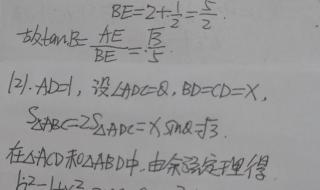 BE=2+1/2=5/2.
故tanB=AE/BE=√3/5.
(2).AD=1,设∠ADC=θ,BD=CD=x,
S△ABC=2S△ADC=xsinθ=√3.
在△ACD和△ABD中,由余弦定理得